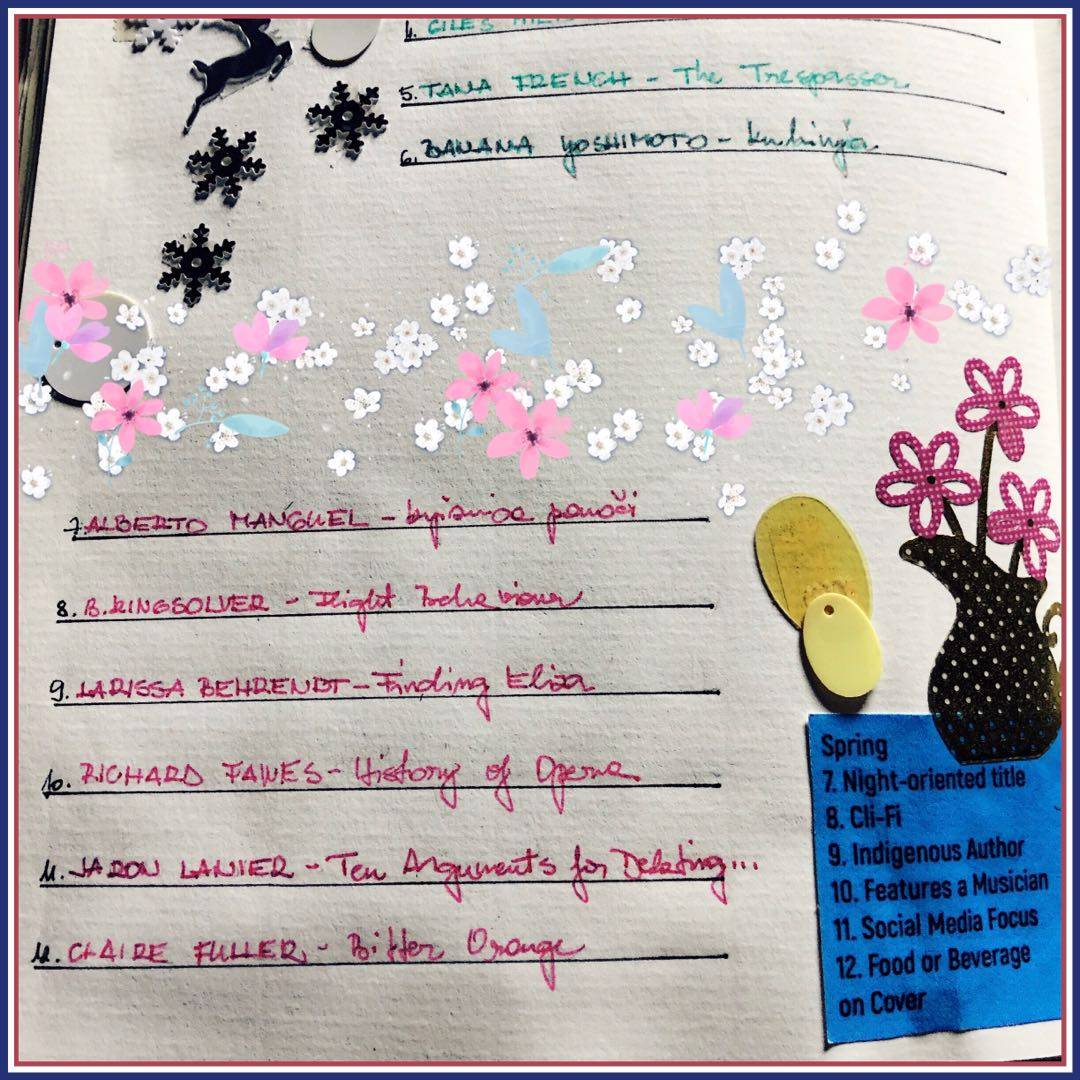 4. GILES
5. TANA FRENCH - The Trespasser
6. BANANA YOSHIMOTO - Kuhinja
7. ALBERTO MANGUEL - Knjižnica ponoči
8. B. KINGSOLVER - Flight Behaviour
9. LARISSA BEHRENDT - Finding Eliza
10. RICHARD FAWKES - History of Opera
11. JARON LANIER - Ten Arguments for Deleting...
12. CLAIRE FULLER - Bitter Orange
Spring
7. Night-oriented title
8. Cli-Fi
9. Indigenous Author
10. Features a Musician
11. Social Media Focus
12. Food or Beverage
on Cover